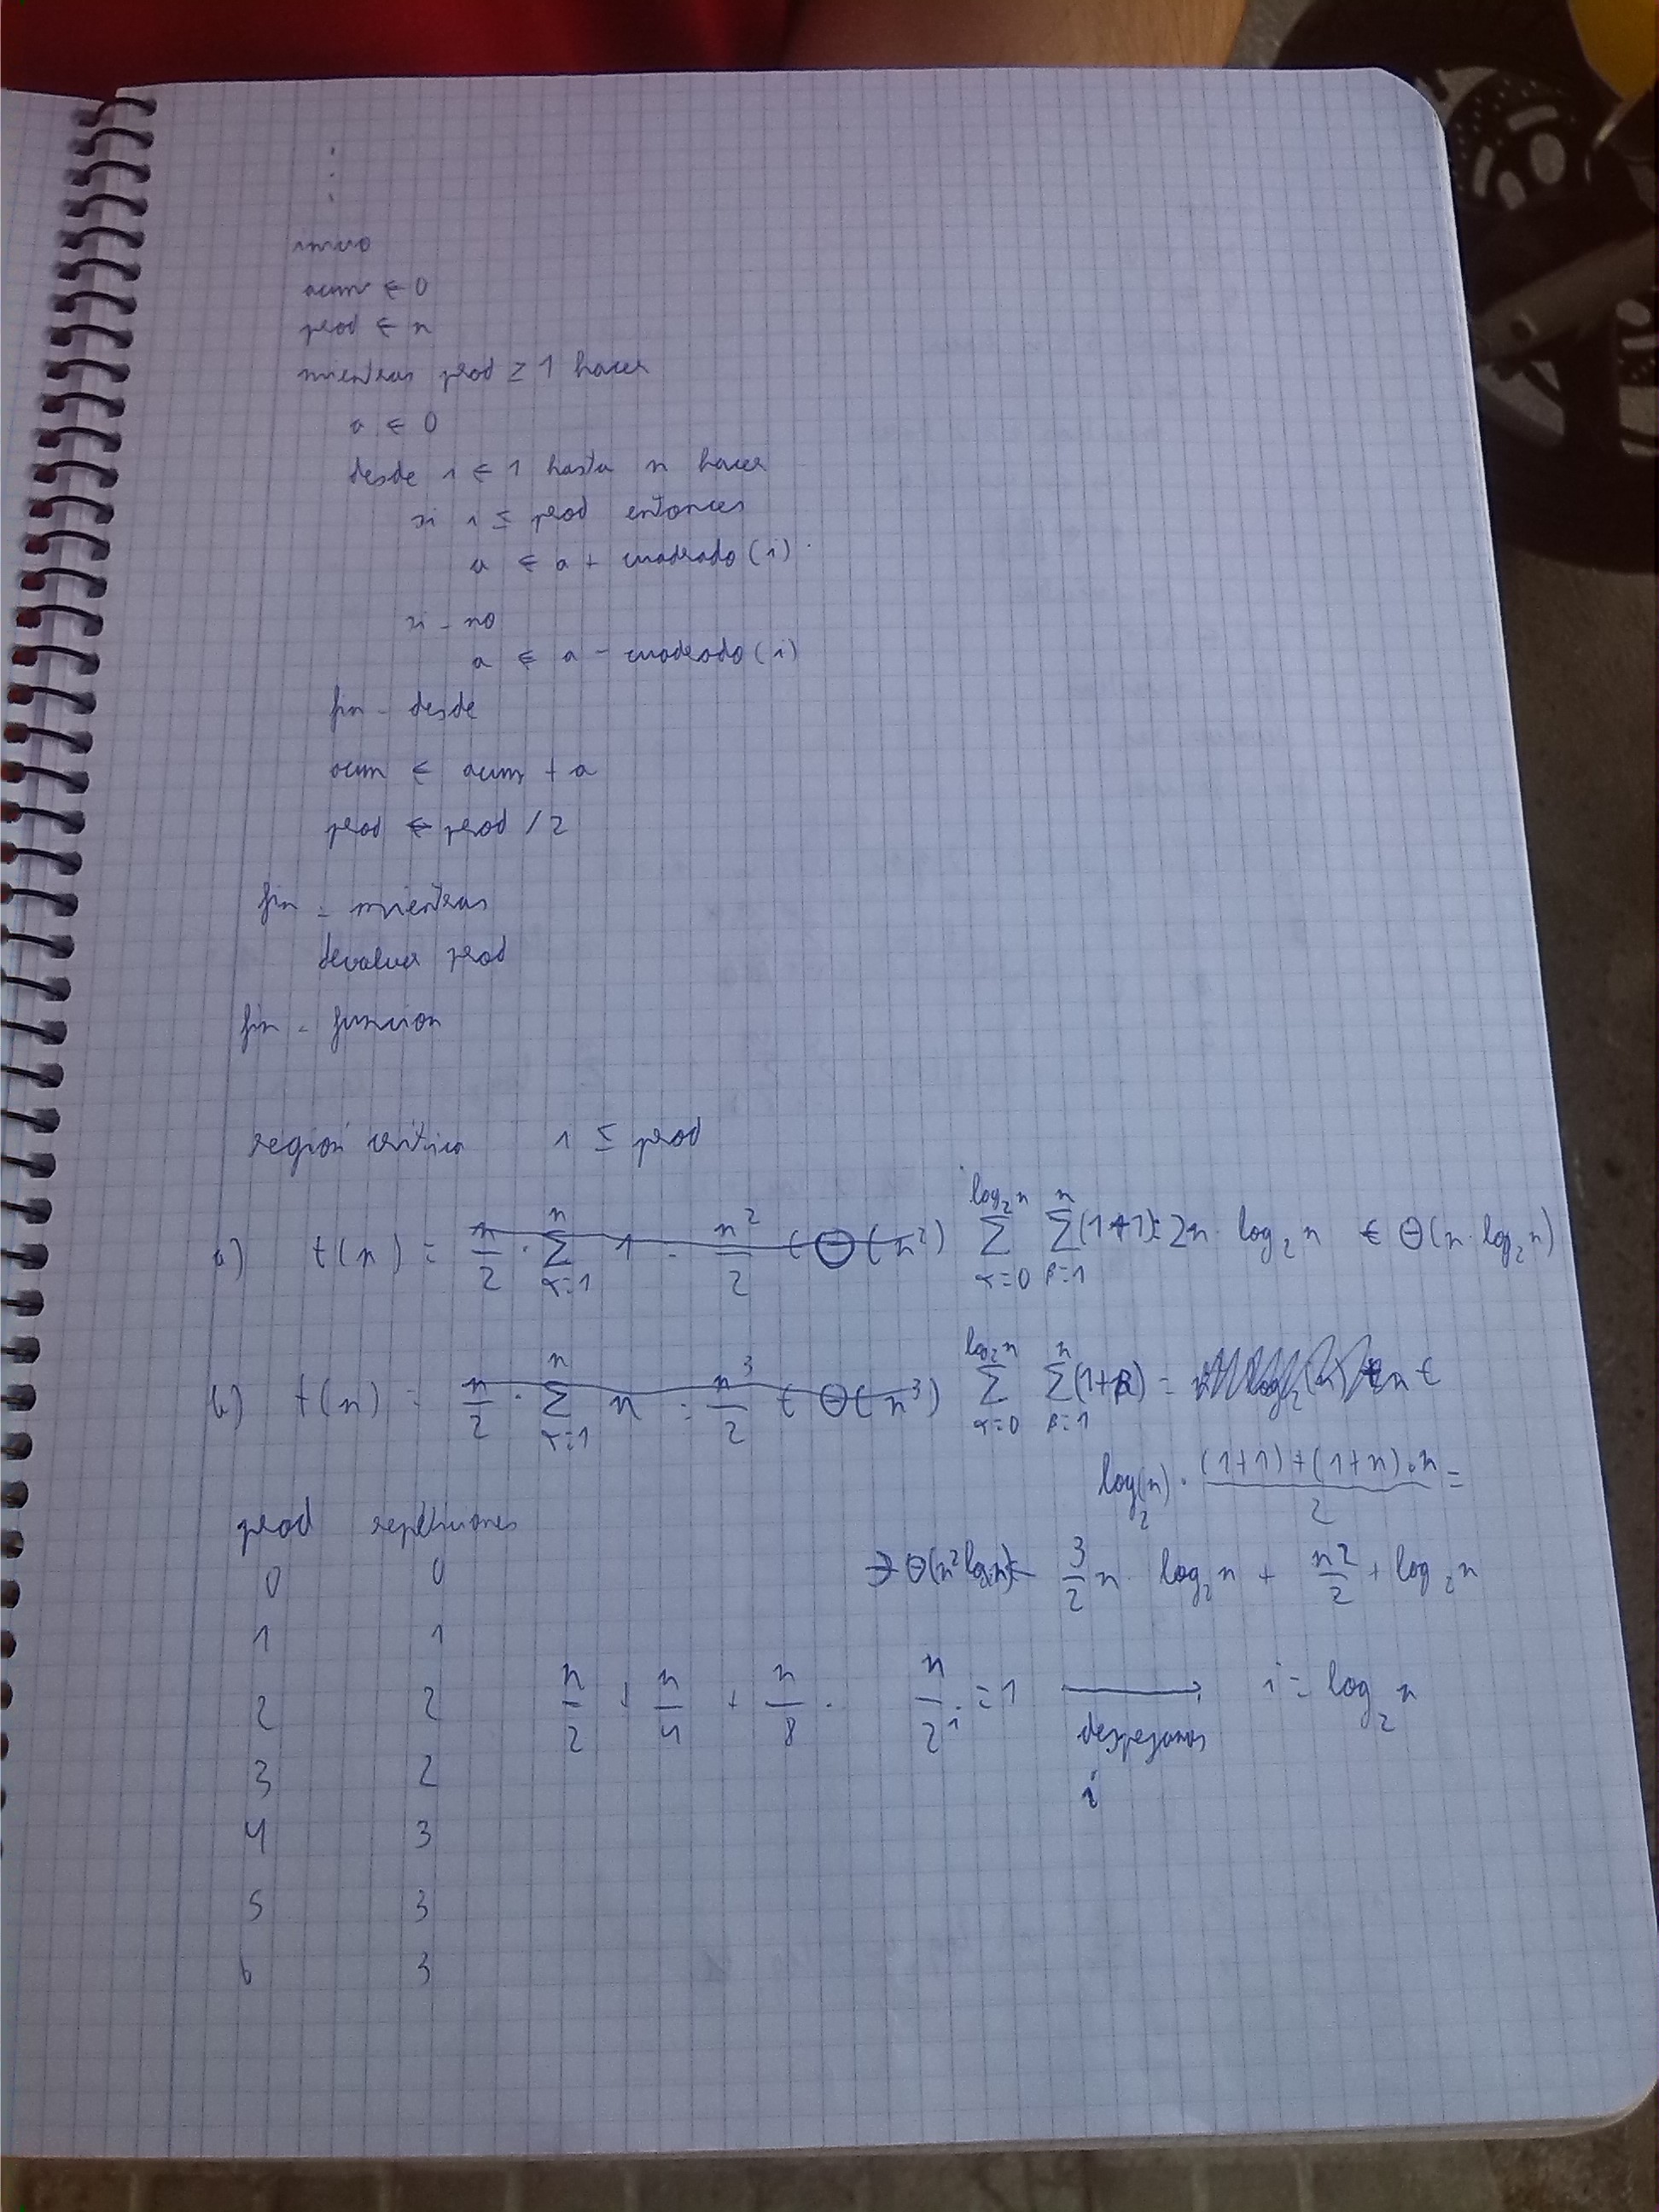 ⋮
inicio
acum ← 0
prod ← n
mientras prod ≥ 1 hacer
a ← 0
desde i ← 1 hasta n hacer
si i ≤ prod entonces
a ← a + cuadrado(i)
si-no
a ← a - cuadrado(i)
fin-desde
acum ← acum + a
prod ← prod / 2
fin-mientras
devolver prod
fin-funcion
región crítica i ≤ prod
a) t(n) = n/2 · ∑_{α=1}^{n} 1 = n²/2 ∈ Θ(n²) ∑_{α=0}^{log₂n} ∑_{β=1}^{n} (1+1) = 2n · log₂n ∈ Θ(n·log₂n)
b) t(n) = n/2 · ∑_{α=1}^{n} n = n³/2 ∈ Θ(n³) ∑_{α=0}^{log₂n} ∑_{β=1}^{n} (1+β) =
log₂(n) · (1+1)+(1+n)·n / 2 =
prod repeticiones
→ Θ(n² log₂n) ← 3/2 n · log₂n + n²/2 + log₂n
0 0
1 1
2 2 n/2 + n/4 + n/8 · n/2^i = 1 → despejamos i i = log₂n
3 2
4 3
5 3
6 3